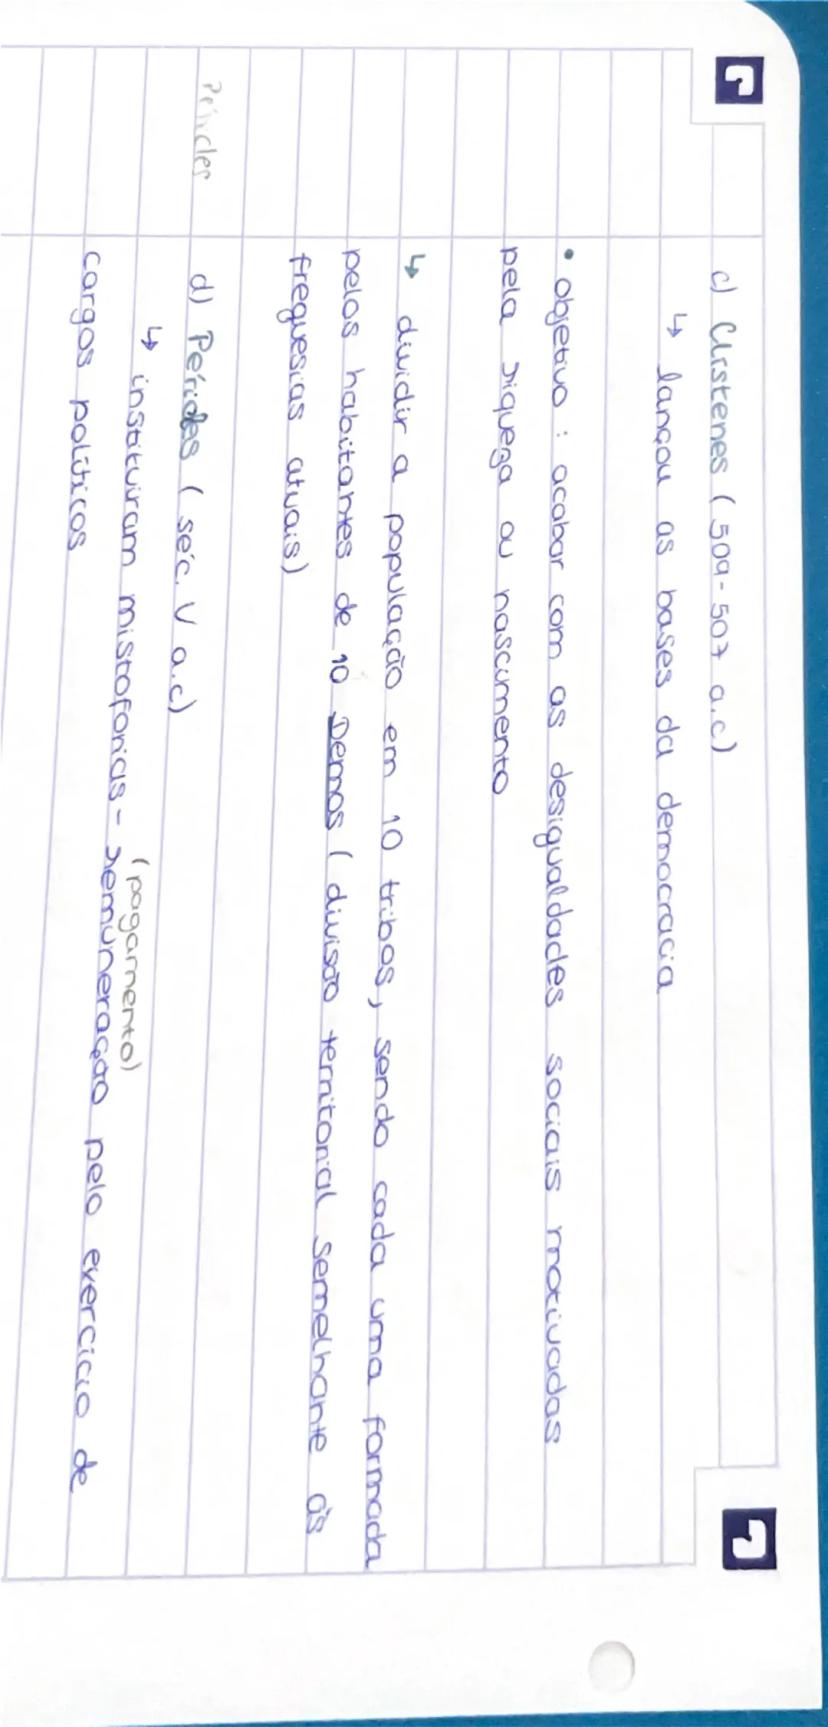 c) Clístenes (509-507 a.c)
↳ lançou as bases da democracia
• objetivo : acabar com as desigualdades sociais motivadas
pela riqueza ou nascimento
↳ dividir a população em 10 tribos, sendo cada uma formada
pelos habitantes de 10 Demos ( divisão territorial semelhante às
freguesias atuais)
Péricles d) Péricles ( séc. V a.c)
(pagamento)
↳ instituíram mistoforias - remuneração pelo exercício de
cargos políticos